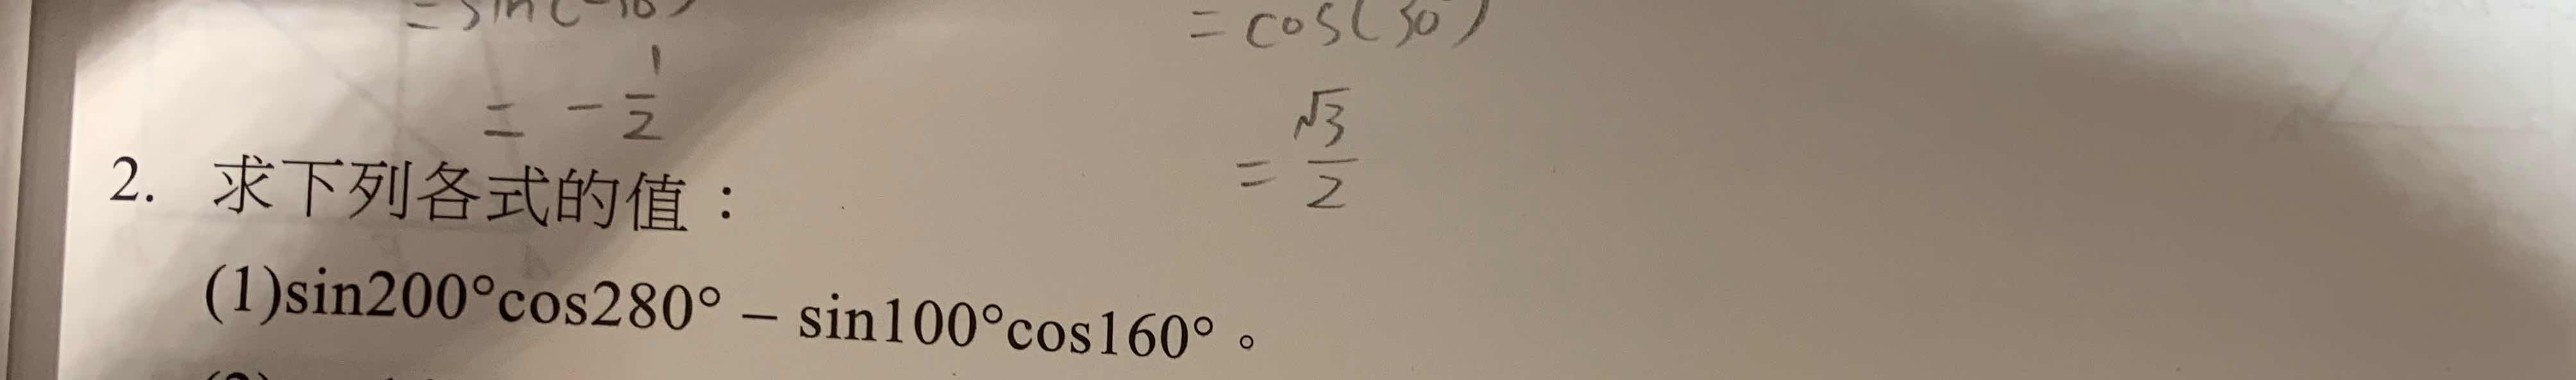 = cos(30°)
= -1/2
= √3/2
2. 求下列各式的值：
(1)sin200°cos280° − sin100°cos160°。